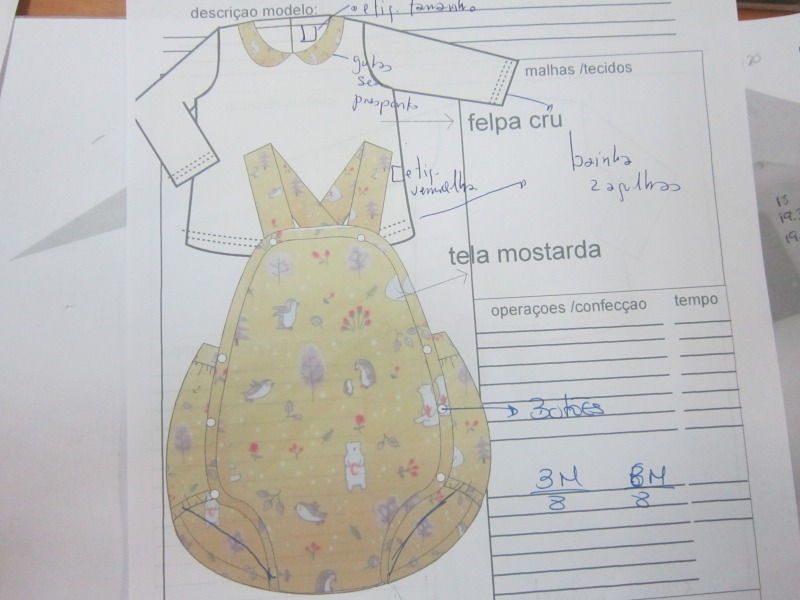 descriçao modelo:
etiq. tamanho
gola
pesponto
malhas /tecidos
felpa crú
bainha
2 agulhas
etiq.
vermelha
tela mostarda
operaçoes /confecçao
tempo
3M
8
6M
8